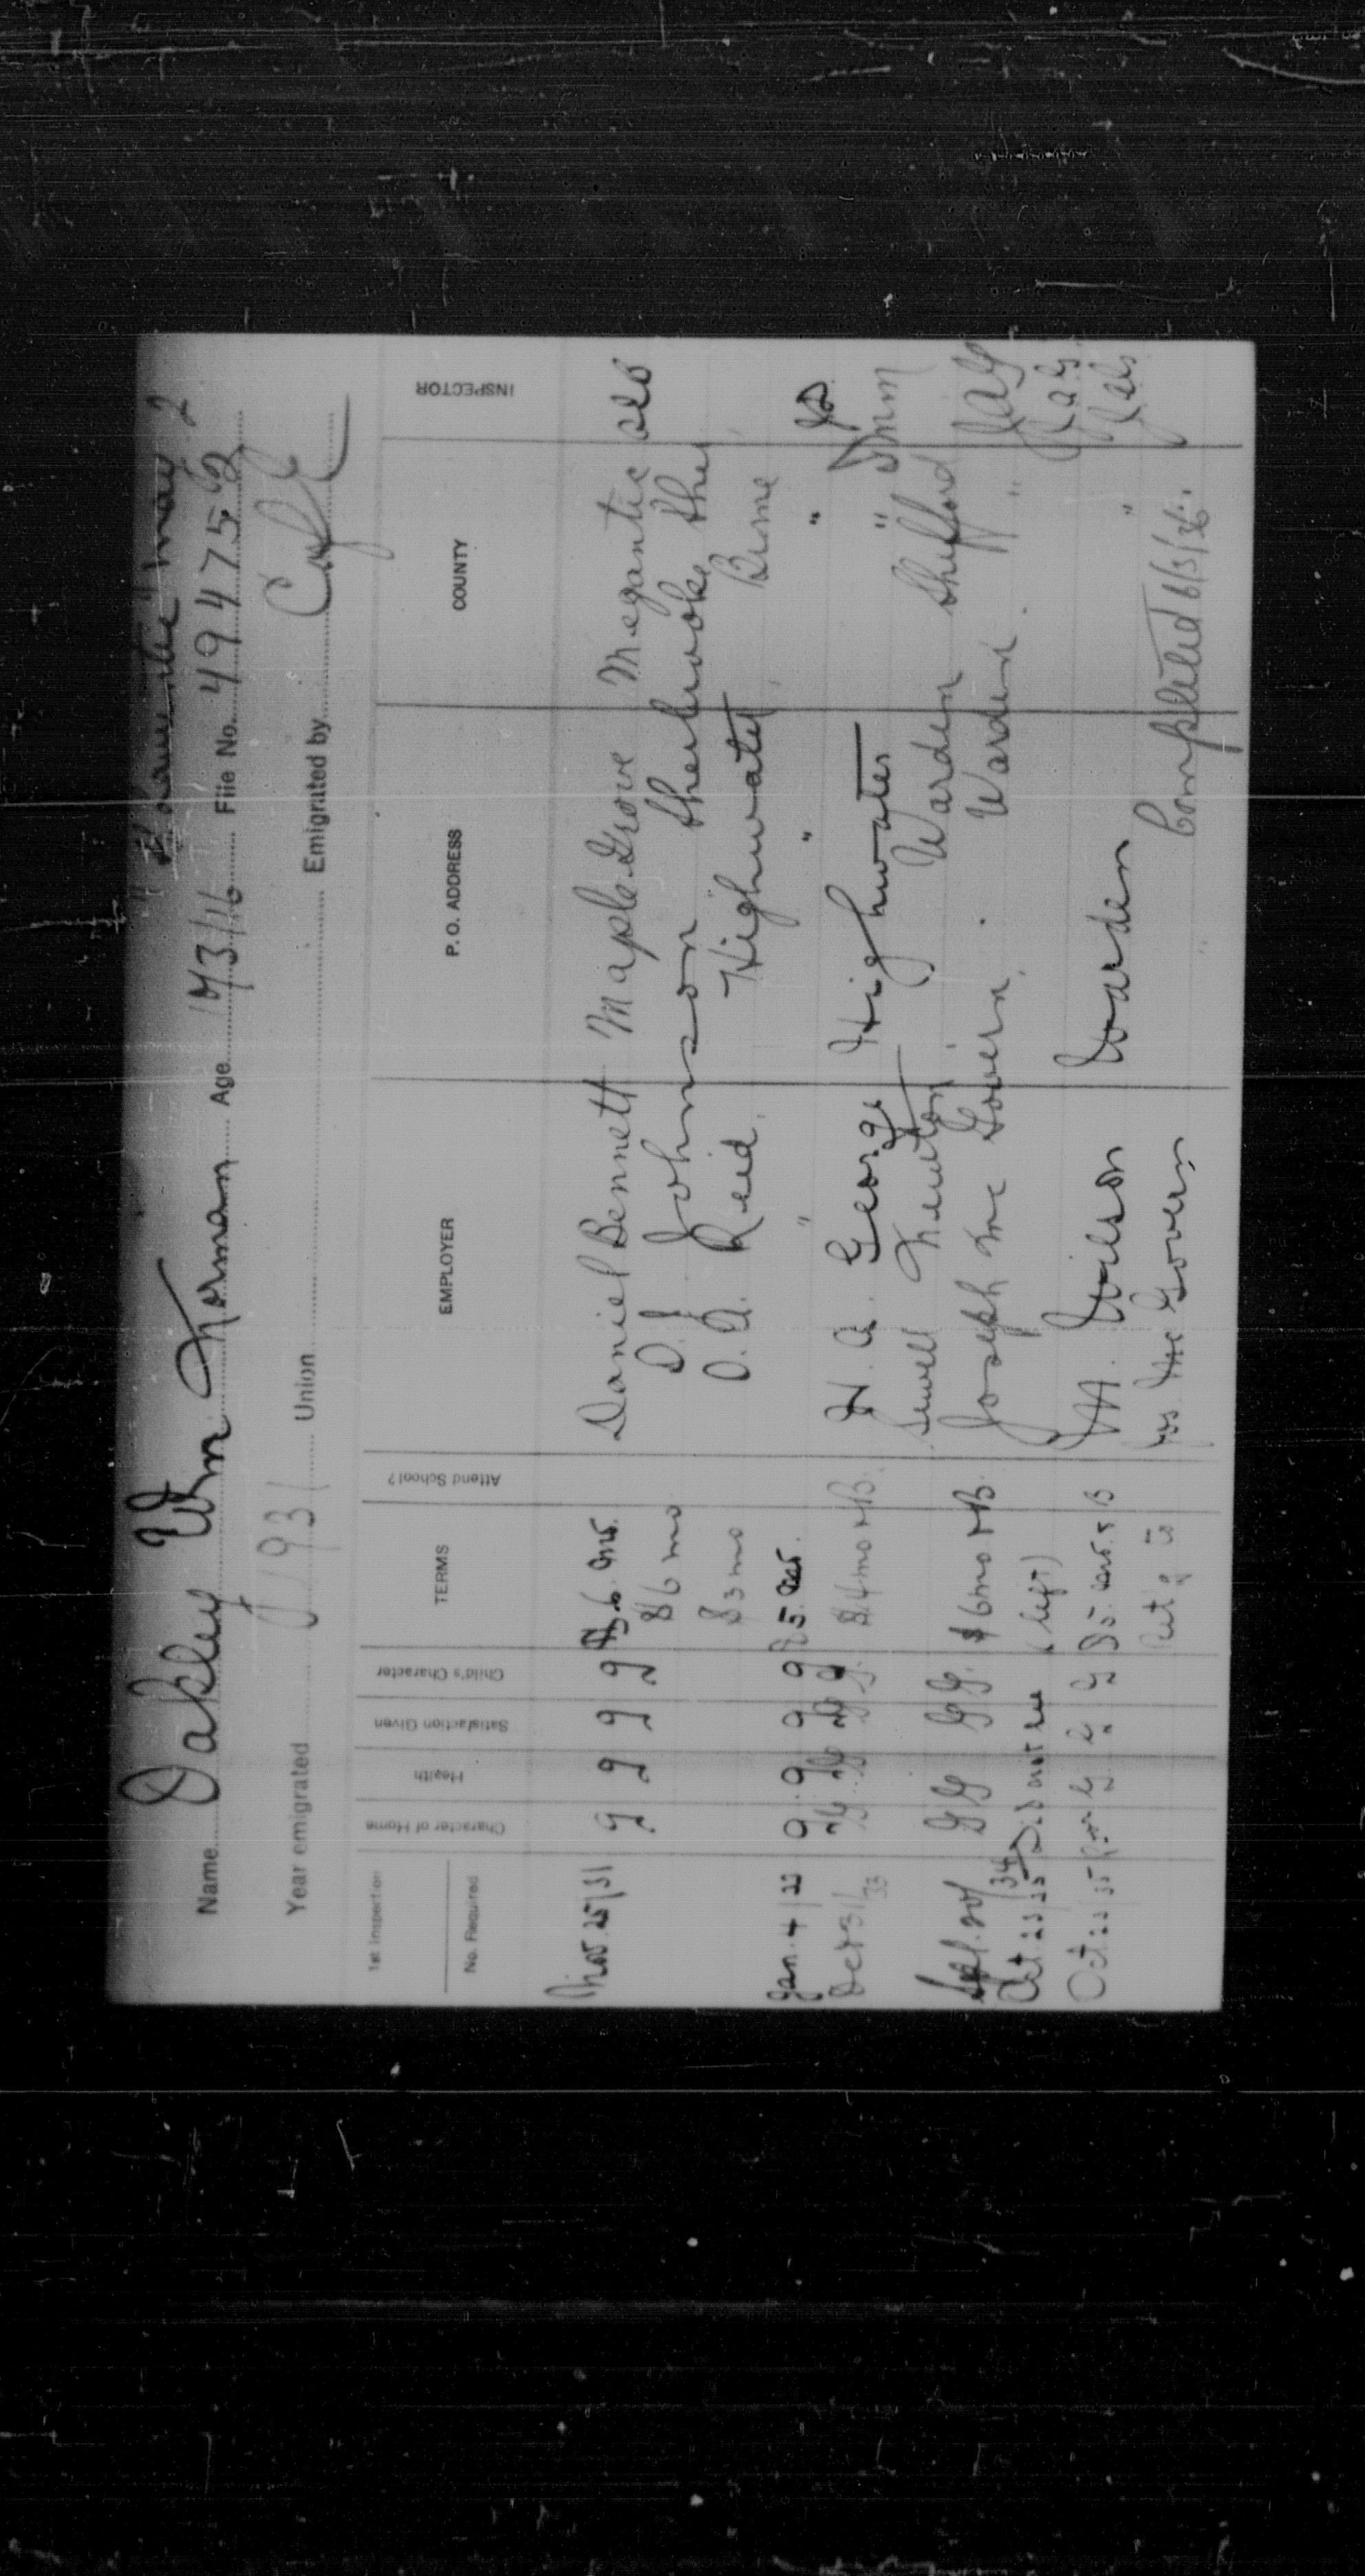 May 2
Name Oakley Wm Norman Age 17/3/16 File No. 494752
Year emigrated 1931 Union Emigrated by
1st Inspection
No. Required
Character of Home
Health
Satisfaction Given
Child's Character
TERMS
Attend School?
EMPLOYER
P. O. ADDRESS
COUNTY
INSPECTOR
Nov. 25/31 g g g g $6 mo. Daniel Bennett Maple Grove Megantic
$6 mo D. J. Johnson Sherbrooke Sher
$3 mo O. A. Reid Highwater Brome
Jan. 4/33 g g g g $5 " " "
Oct 31/33 G. G. G. G. $4 mo & B. H. A. George Highwater "
Sewell Newton Warden Shefford
Sept. 20/34 G G G G $6 mo & B. Joseph McGovern Warden "
Oct 23/35 Did not see (left)
Oct 23/35 G G G $5 & B M. Wilson Warden "
Ret'g to Jos. McGovern
Completed 6/3/36.